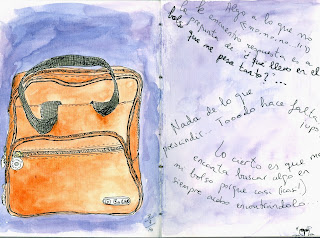 Algo a lo que no
le encuentro respuesta es a
la pregunta de ¿Que llevo en el
bolso que me pesa tanto?...
Nada de lo que
prescindir. Toooodo hace falta
Lo cierto es que me
encanta buscar algo en
mi bolso porque casi (casi!)
siempre acabo encontrándolo...